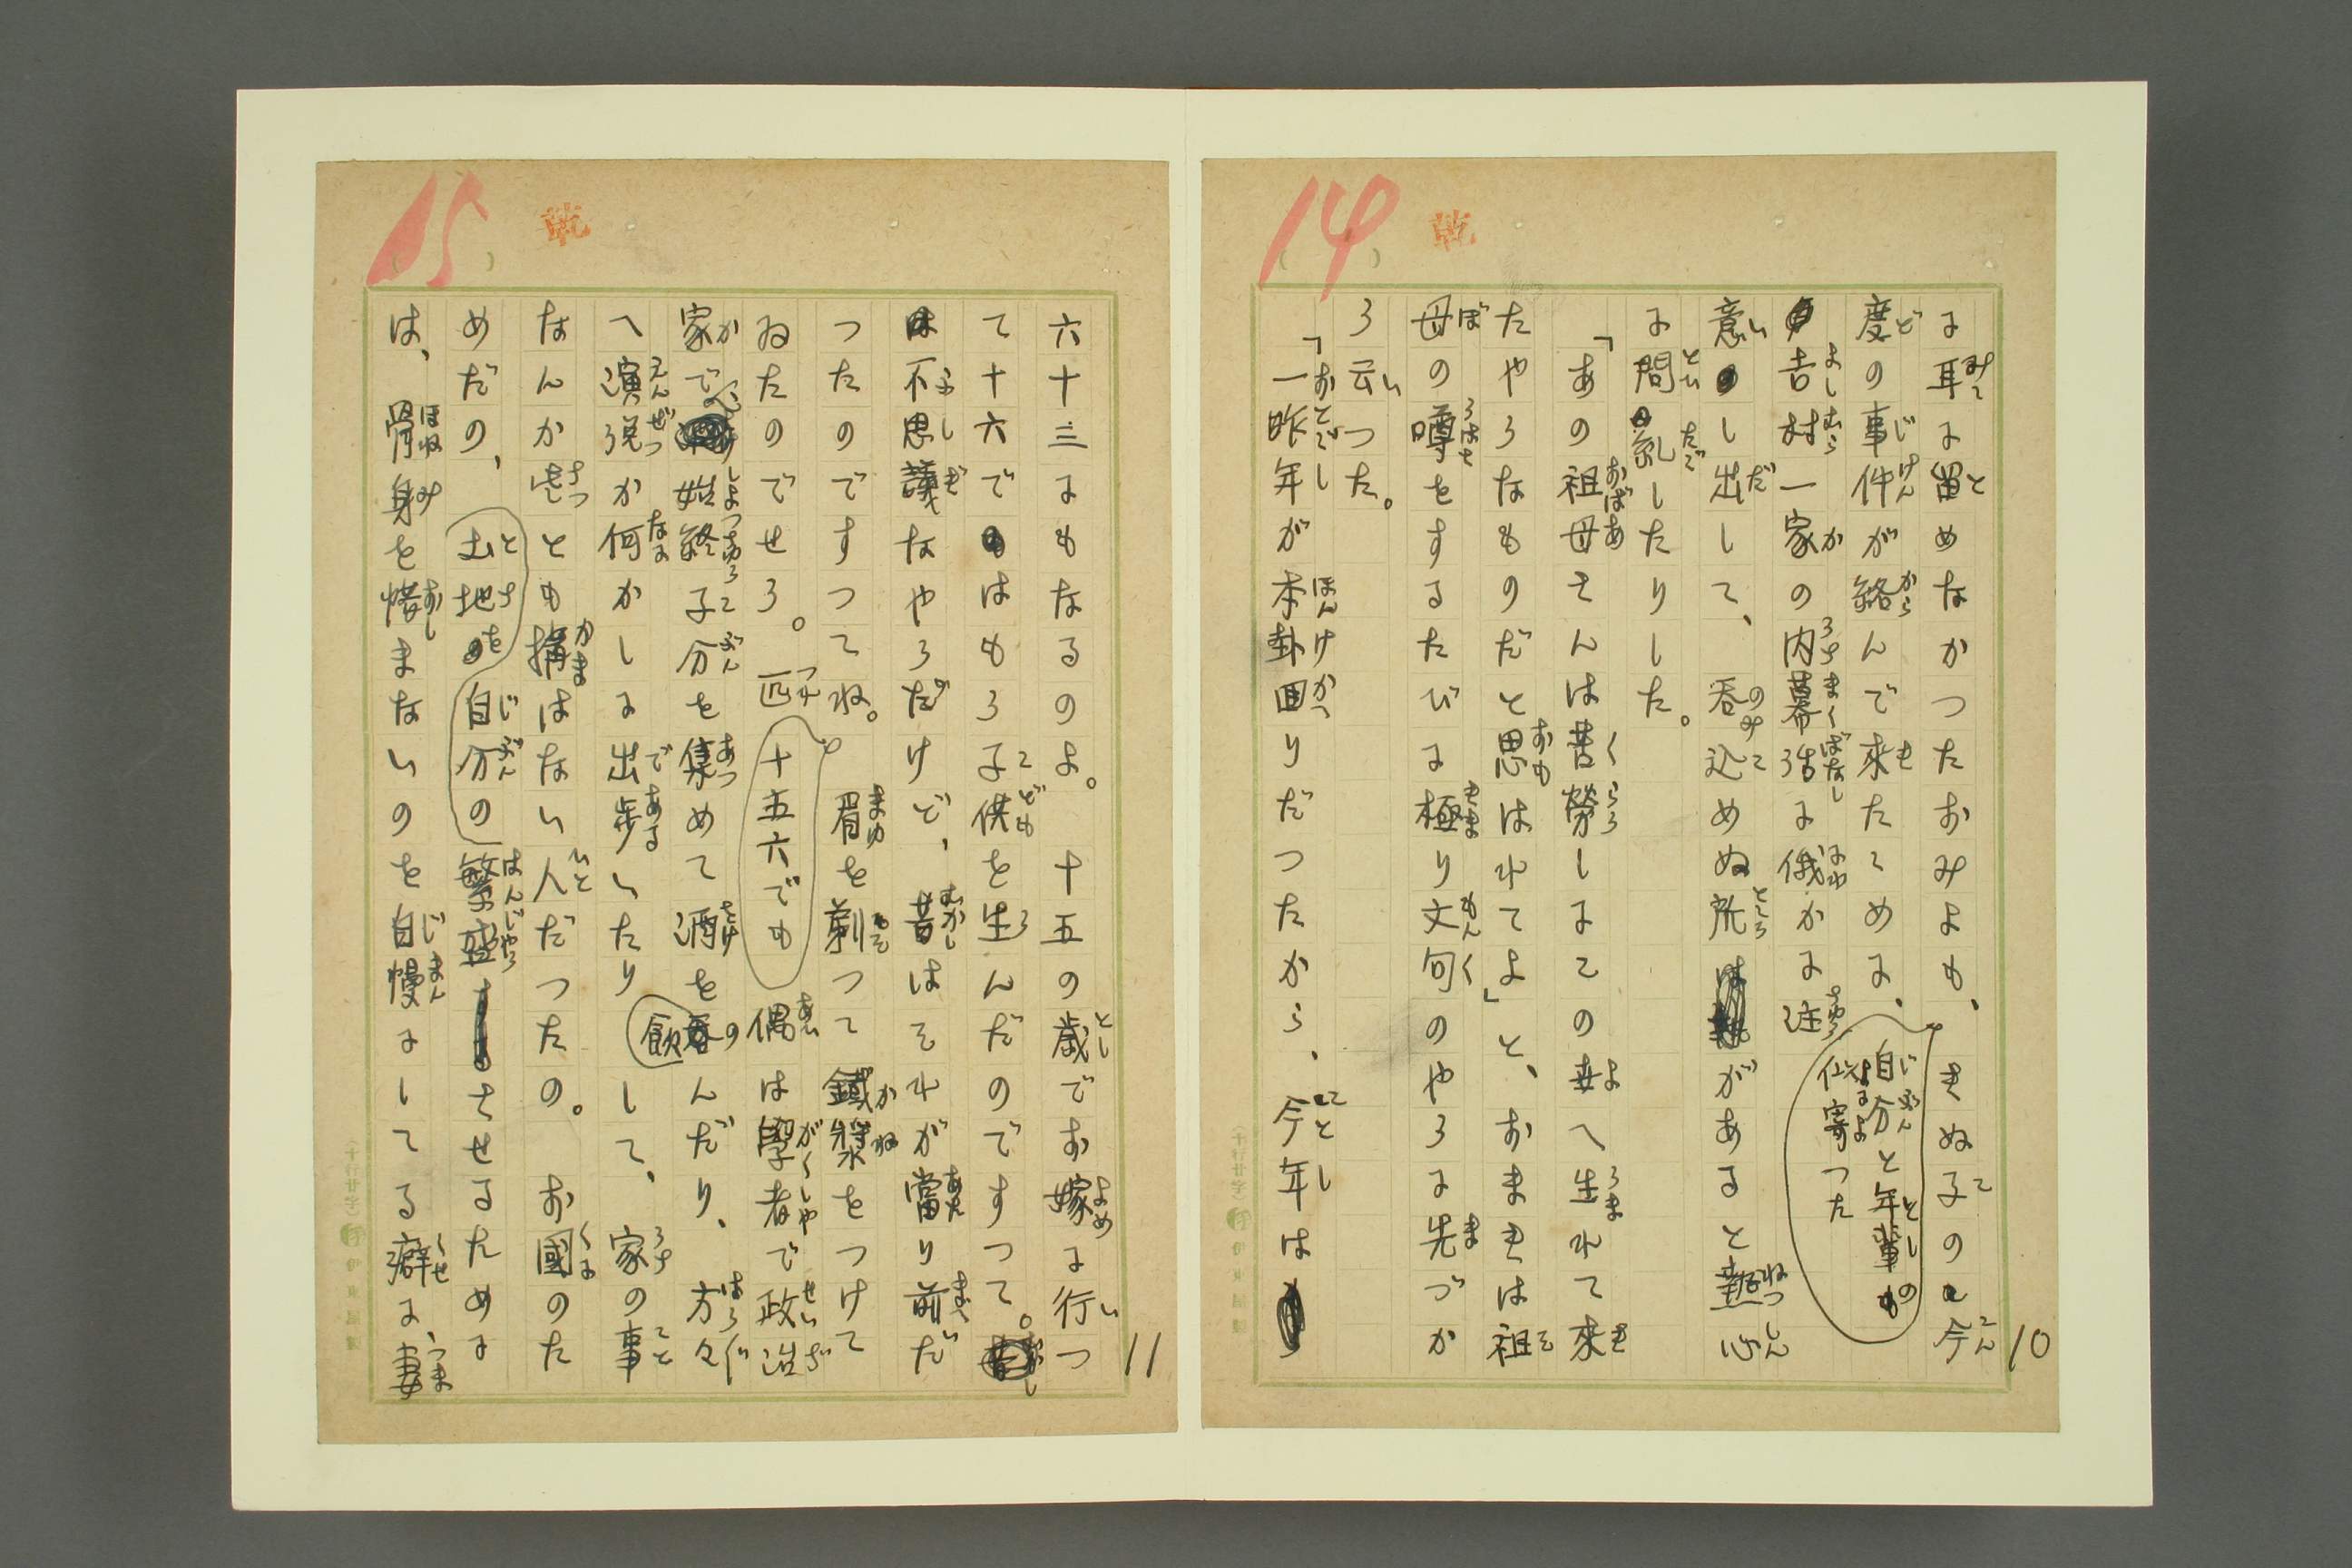 14
乾
10
に耳に留めなかつたおみよも、きぬ子の今
自分と年輩も
似寄つた
度の事件が絡んで来たために、
吉村一家の内幕話に俄かに注
意し出して、呑込めぬ所があると熱心
に問糺したりした。
「あの祖母さんは苦勞しにこの世へ生れて來
たやうなものだと思はれてよ」と、おまきは祖
母の噂をするたびに極り文句のやうに先づか
う云つた。
「一昨年が本卦回りだつたから、今年は
15
乾
11
六十三にもなるのよ。十五の歳でお嫁に行つ
て十六ではもう子供を生んだのですつて。
は不思議なやうだけど、昔はそれが當り前だ
つたのですつてね。眉を剃つて鐵漿をつけて
十五六でも
ゐたのでせう。匹偶は學者で政治
家で始終子分を集めて酒を飲んだり、方々
へ演説か何かしに出歩いたりして、家の事
なんか些とも構はない人だつたの。お國のた
めだの、土地を自分の繁盛させるために
は、骨身を惜まないのを自慢にしてる癖に、妻